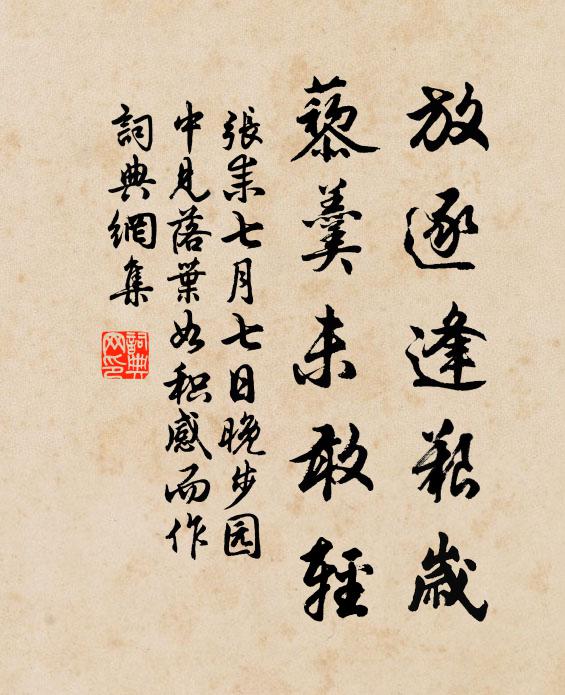 放逐逢艱歲
藜羹未敢輕
張耒七月七日晚步园
中見落葉如积感而作
詞典網集
詞典网印